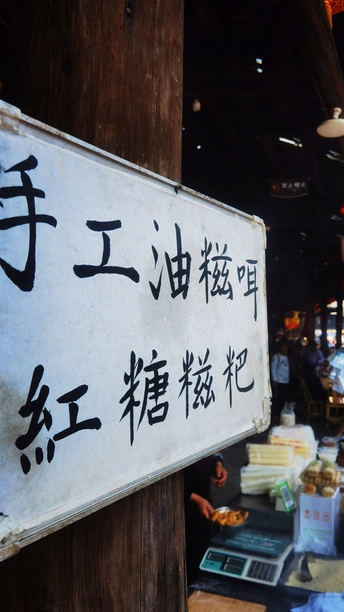 手工油糍咡
紅糖糍粑